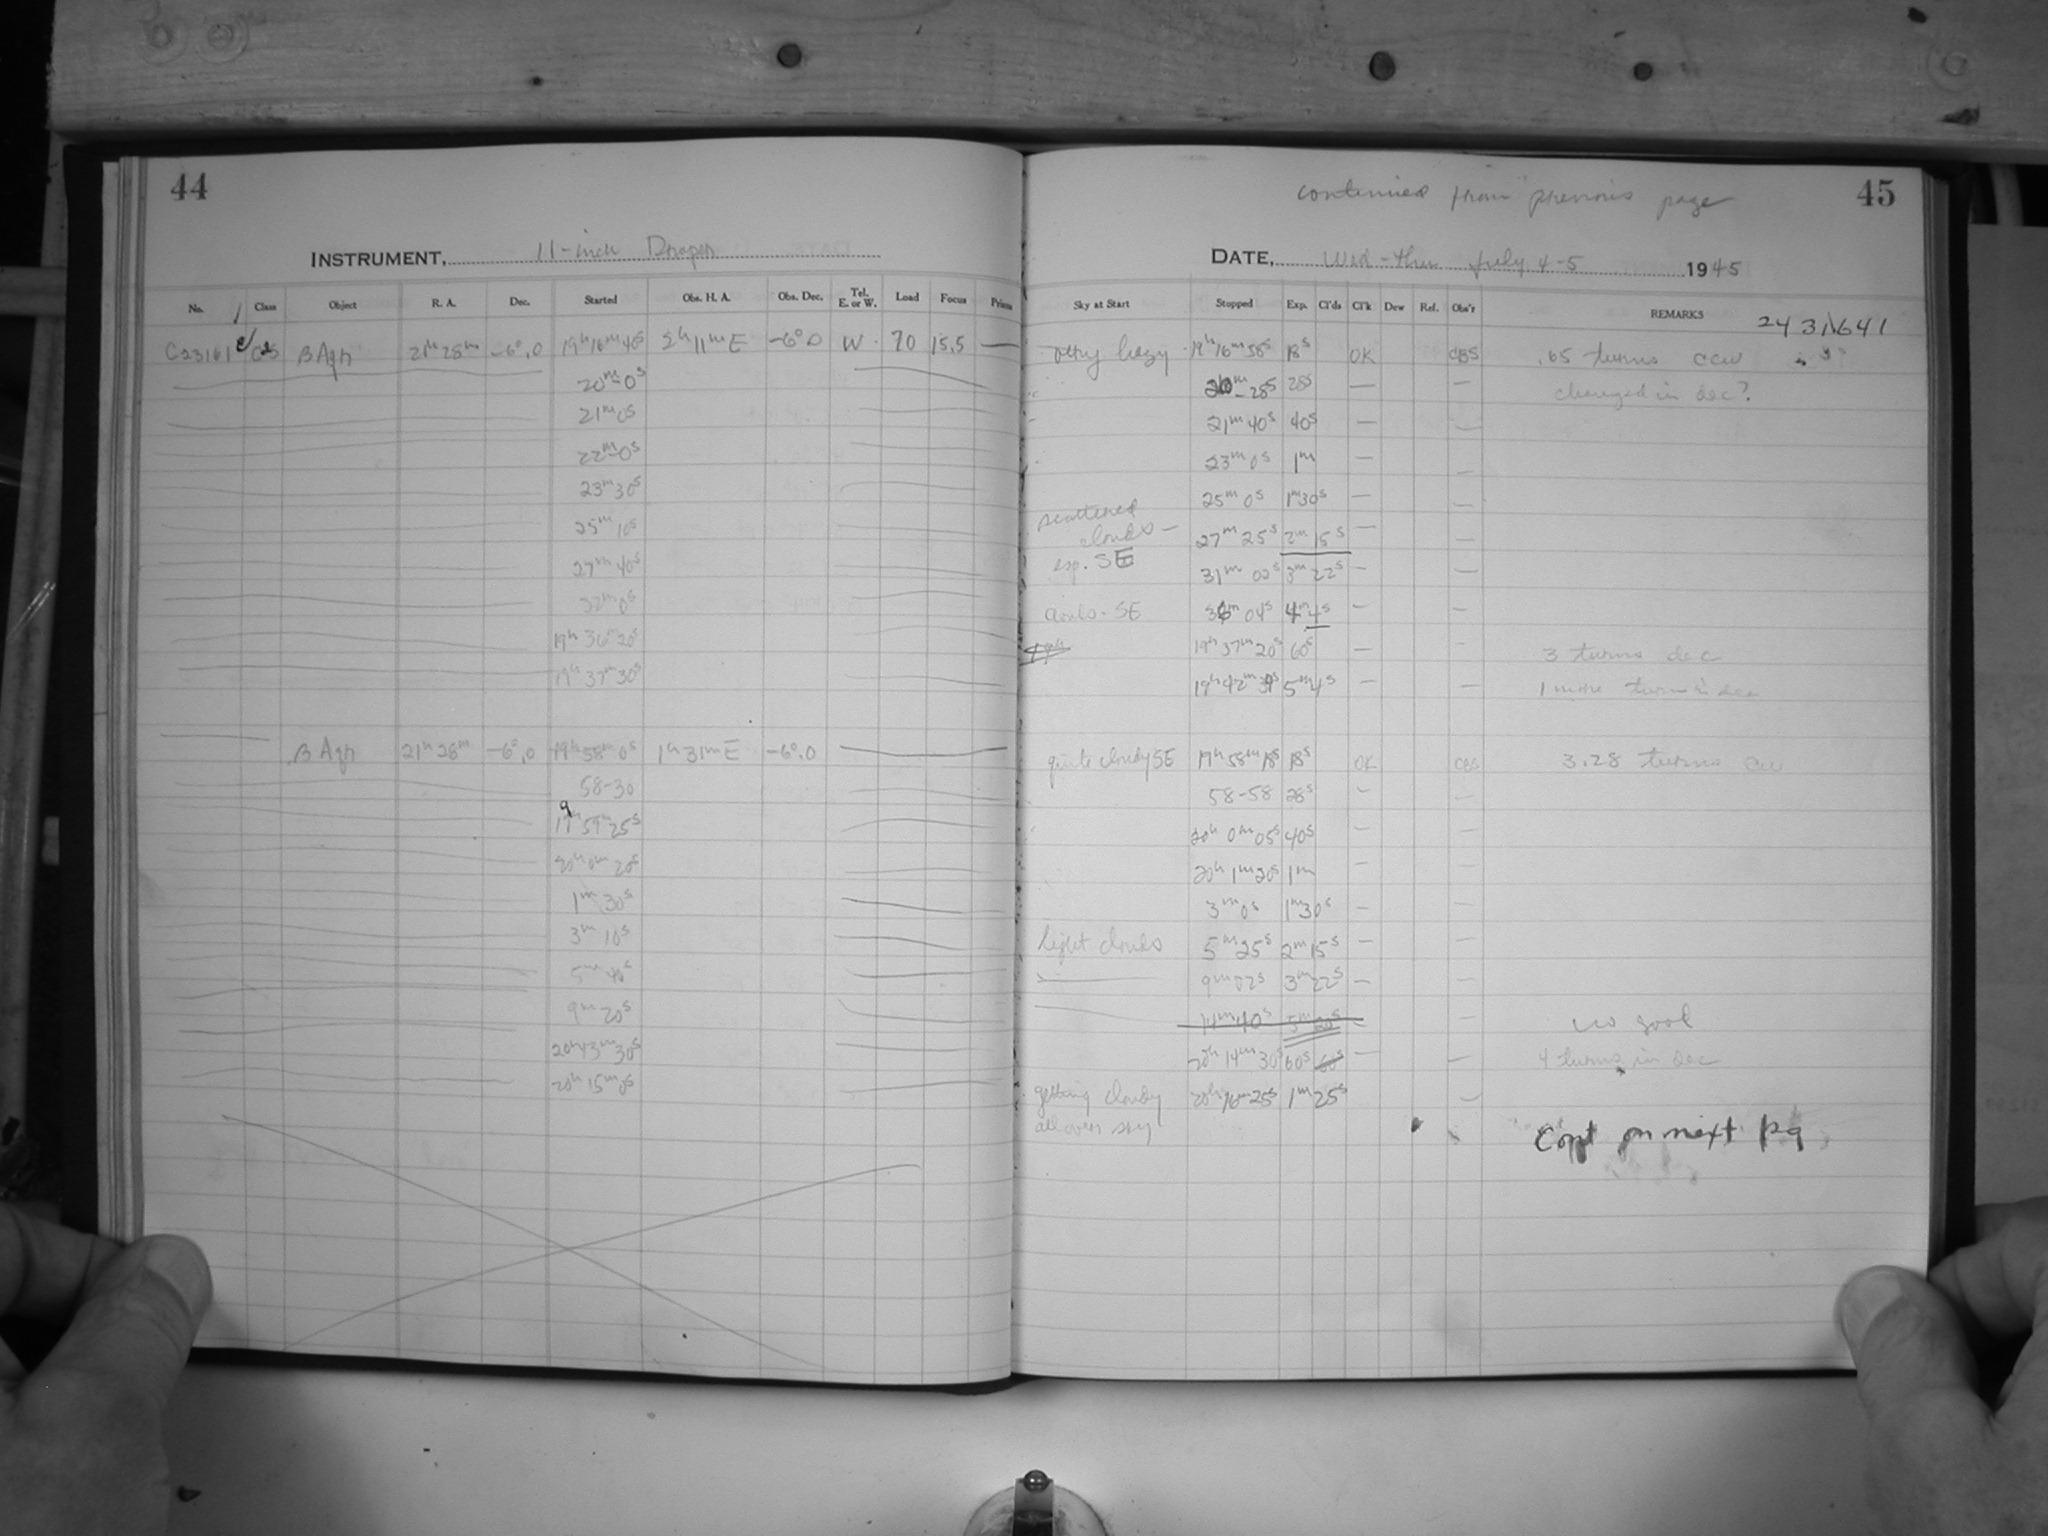 44
INSTRUMENT, 11-inch Draper
No. Class Object R. A. Dec. Started Obs. H. A. Obs. Dec. Tel. E. or W. Load Focus Prisms
C23161 β Aqr 21h 28m -6°.0 19h 16m 40s 2h 11m E -6°.0 W 70 15.5 —
20m-0s
21m 0s
22m-0s
23m 30s
25m 10s
27m 40s
32m 0s
19h 36m 20s
19h 37m 30s
β Aqr 21h 28m -6°.0 19h 58m 0s 1h 31m E -6°.0
58-30
19h 59m 25s
20h 0m 20s
1m 30s
3m 10s
5m 40s
9m 20s
20h 13m 30s
20h 15m 0s
continued from previous page 45
DATE, Wed-Thu July 4-5 1945
Sky at Start Stopped Exp. Cl'ds Cl'k Dew Rel. Obs'r REMARKS 2431641
very hazy 19h 16m 58s 18s OK CBS .65 turns ccw
20m-28s 28s — — changed in dec?
21m 40s 40s — —
23m 0s 1m — —
25m 0s 1m 30s — —
scattered
clouds — 27m 25s 2m 15s — —
esp. SE 31m 02s 3m 22s — —
clouds - SE 36m 04s 4m 4s — —
19h 37m 20s 60s — — 3 turns dec
19h 42m 34s 5m 4s — — 1 more turn in dec
quite cloudy SE 19h 58m 18s 18s OK CBS 3.28 turns cw
58-58 28s — —
20h 0m 05s 40s — —
20h 1m 20s 1m — —
3m 0s 1m 30s — —
light clouds 5m 25s 2m 15s — —
— 9m 02s 3m 22s — —
14m 40s 5m 20s — — no good
20h 14m 30s 60s 60s — — 4 turns in dec
getting cloudy 20h 16m 25s 1m 25s —
all over sky
Cont on next pg